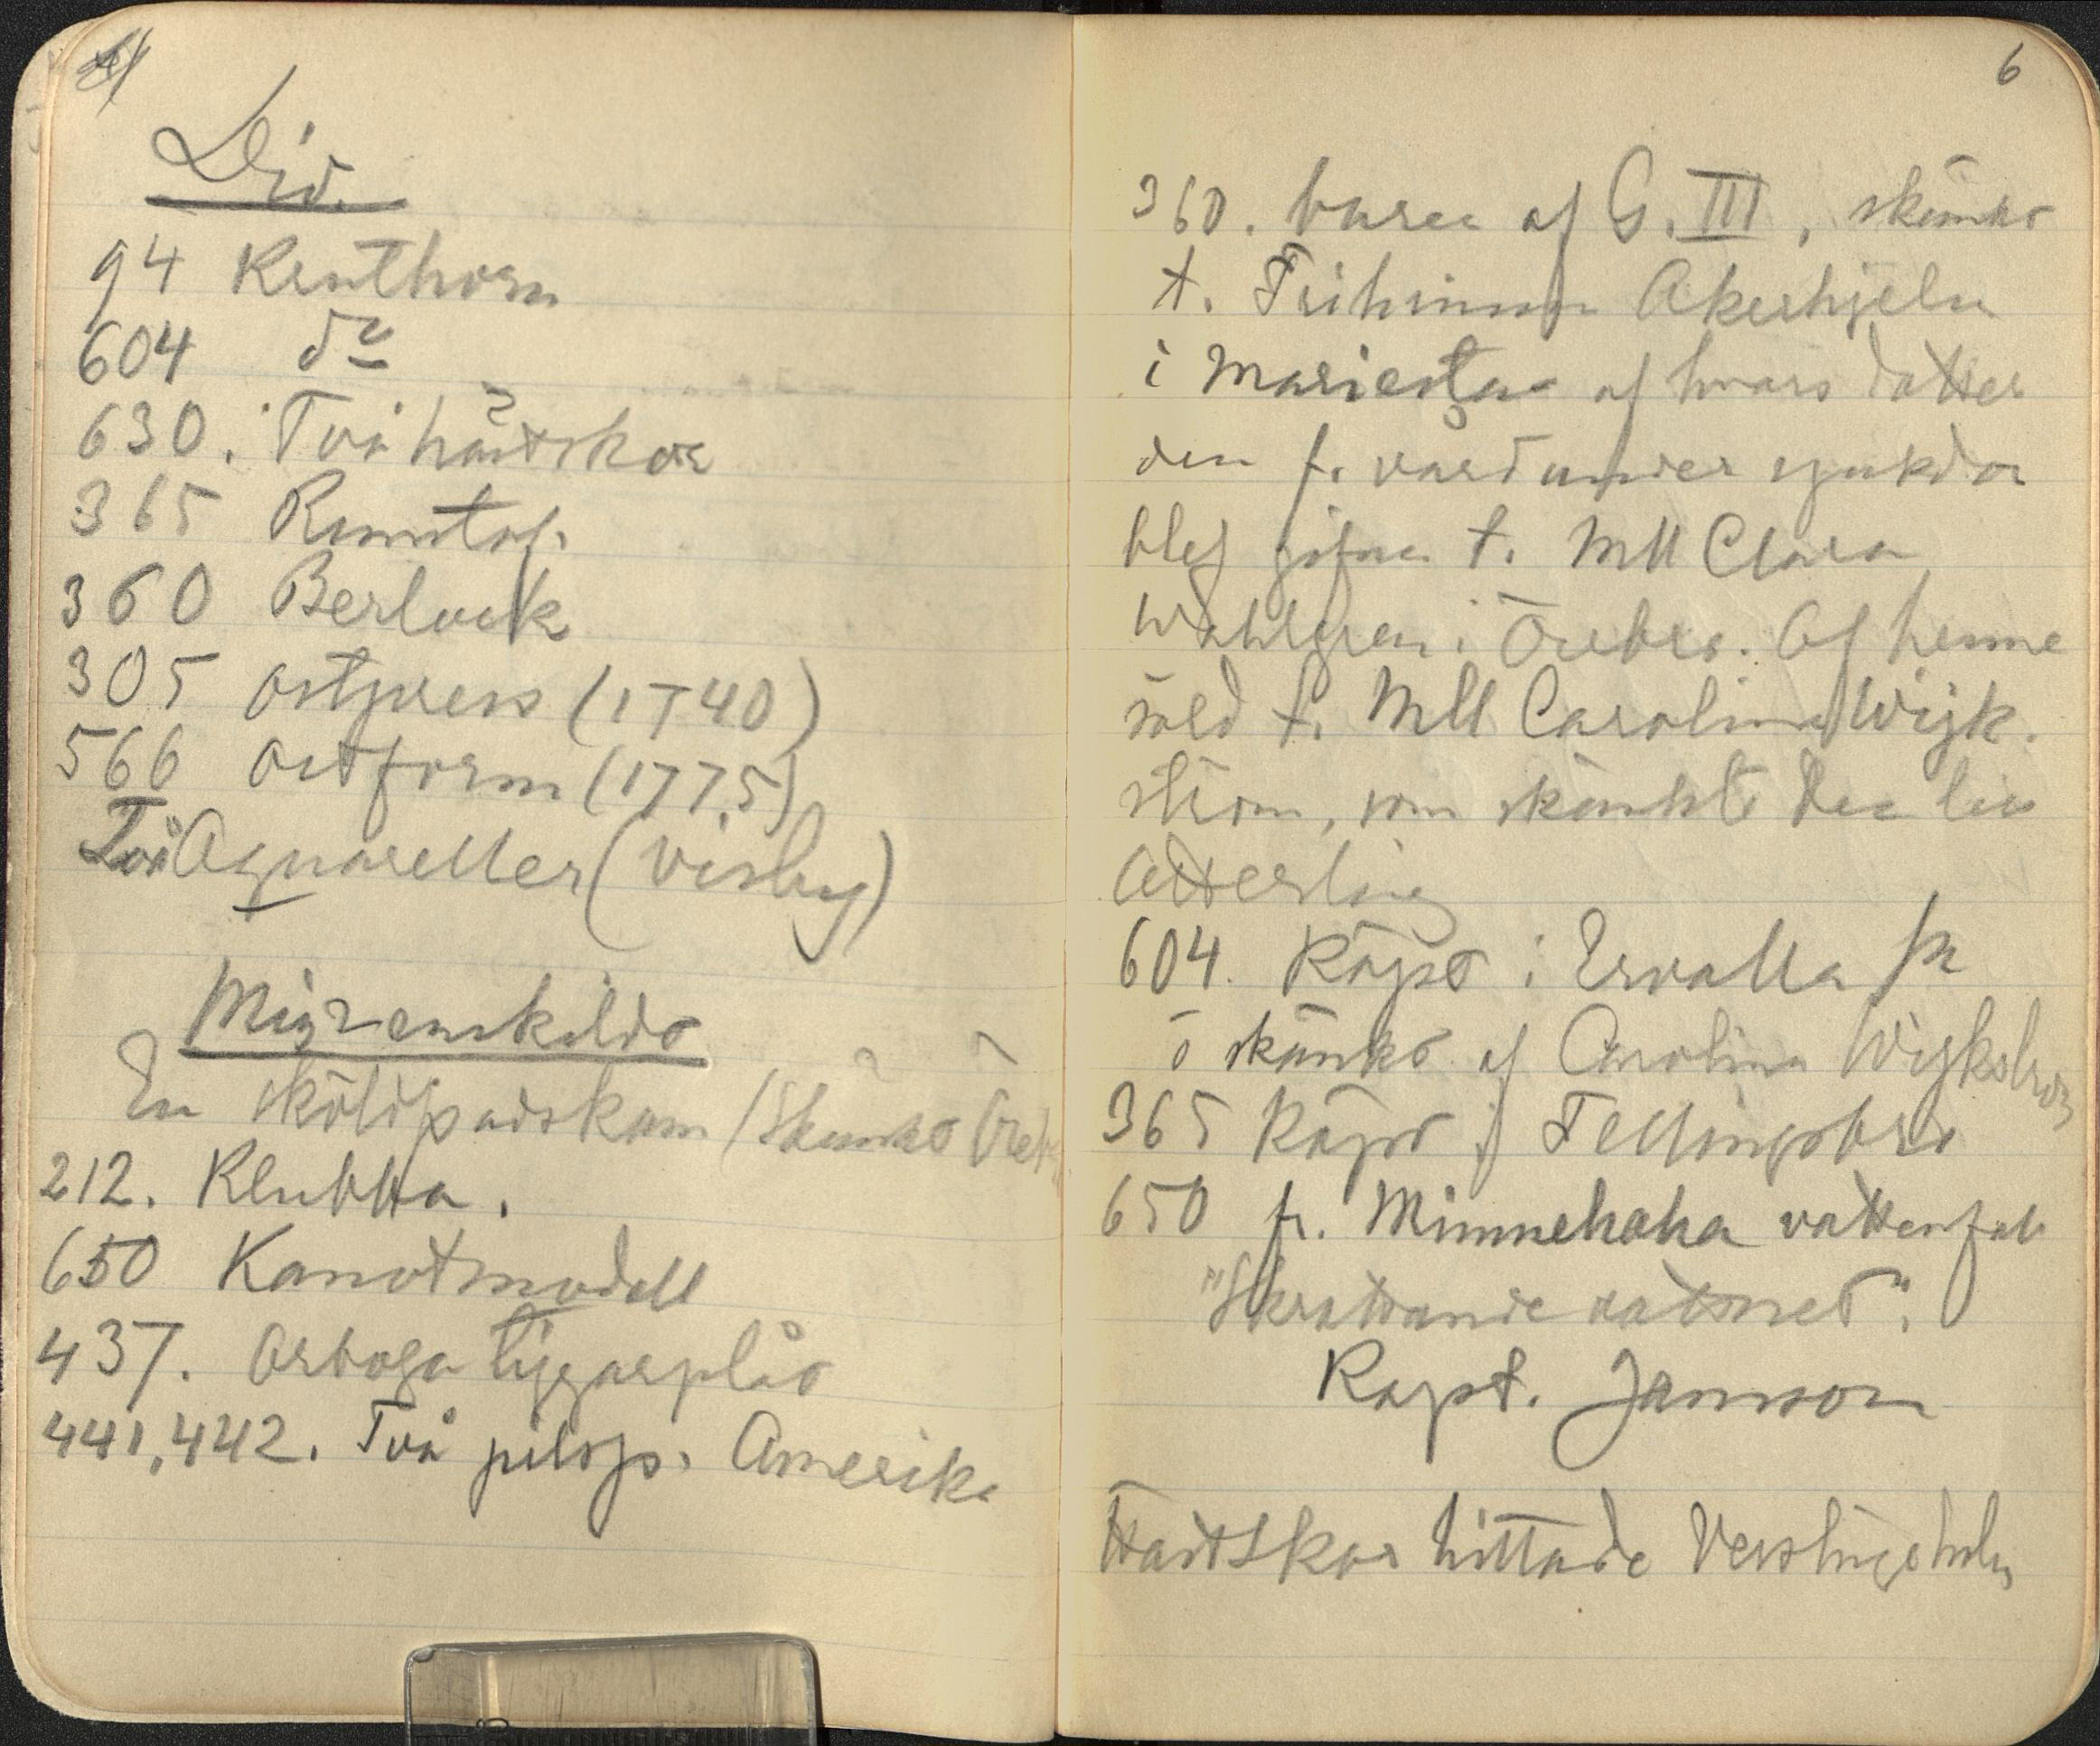 Div.
94 Kruthorn
604 do
630. Två hästskor
365 Runstaf.
360 Berlock
305 ostpress (1740)
566 ostform (1775)
Två Aquareller (Visby)
Mig enskildt
En sköldpadskam (Skänkt Öreb
212. Klubba.
650 Kanotmodell
437. Arboga tiggarplåt
441, 442. Två pilsp. Amerika
6
360. buren af G. III, skänkt
t. Friherinnan Åkerhjelm
i Mariestad af hvars dotter
den f. vård under sjukdom
blef gifven t. Mll Clara
Wahlgren i Örebro. Af henne
såld t. Mll Carolina Wijk-
ström, som skänkte den till
Atterling
604. Köpt i Ervalla sn
o skänkt af Carolina Wijkström
365 Köpt i Fellingsbro
650 fr. Minnehaha vattenfall
"Skrattande vattnet".
Kapt. Jansson
Hästskor hittade